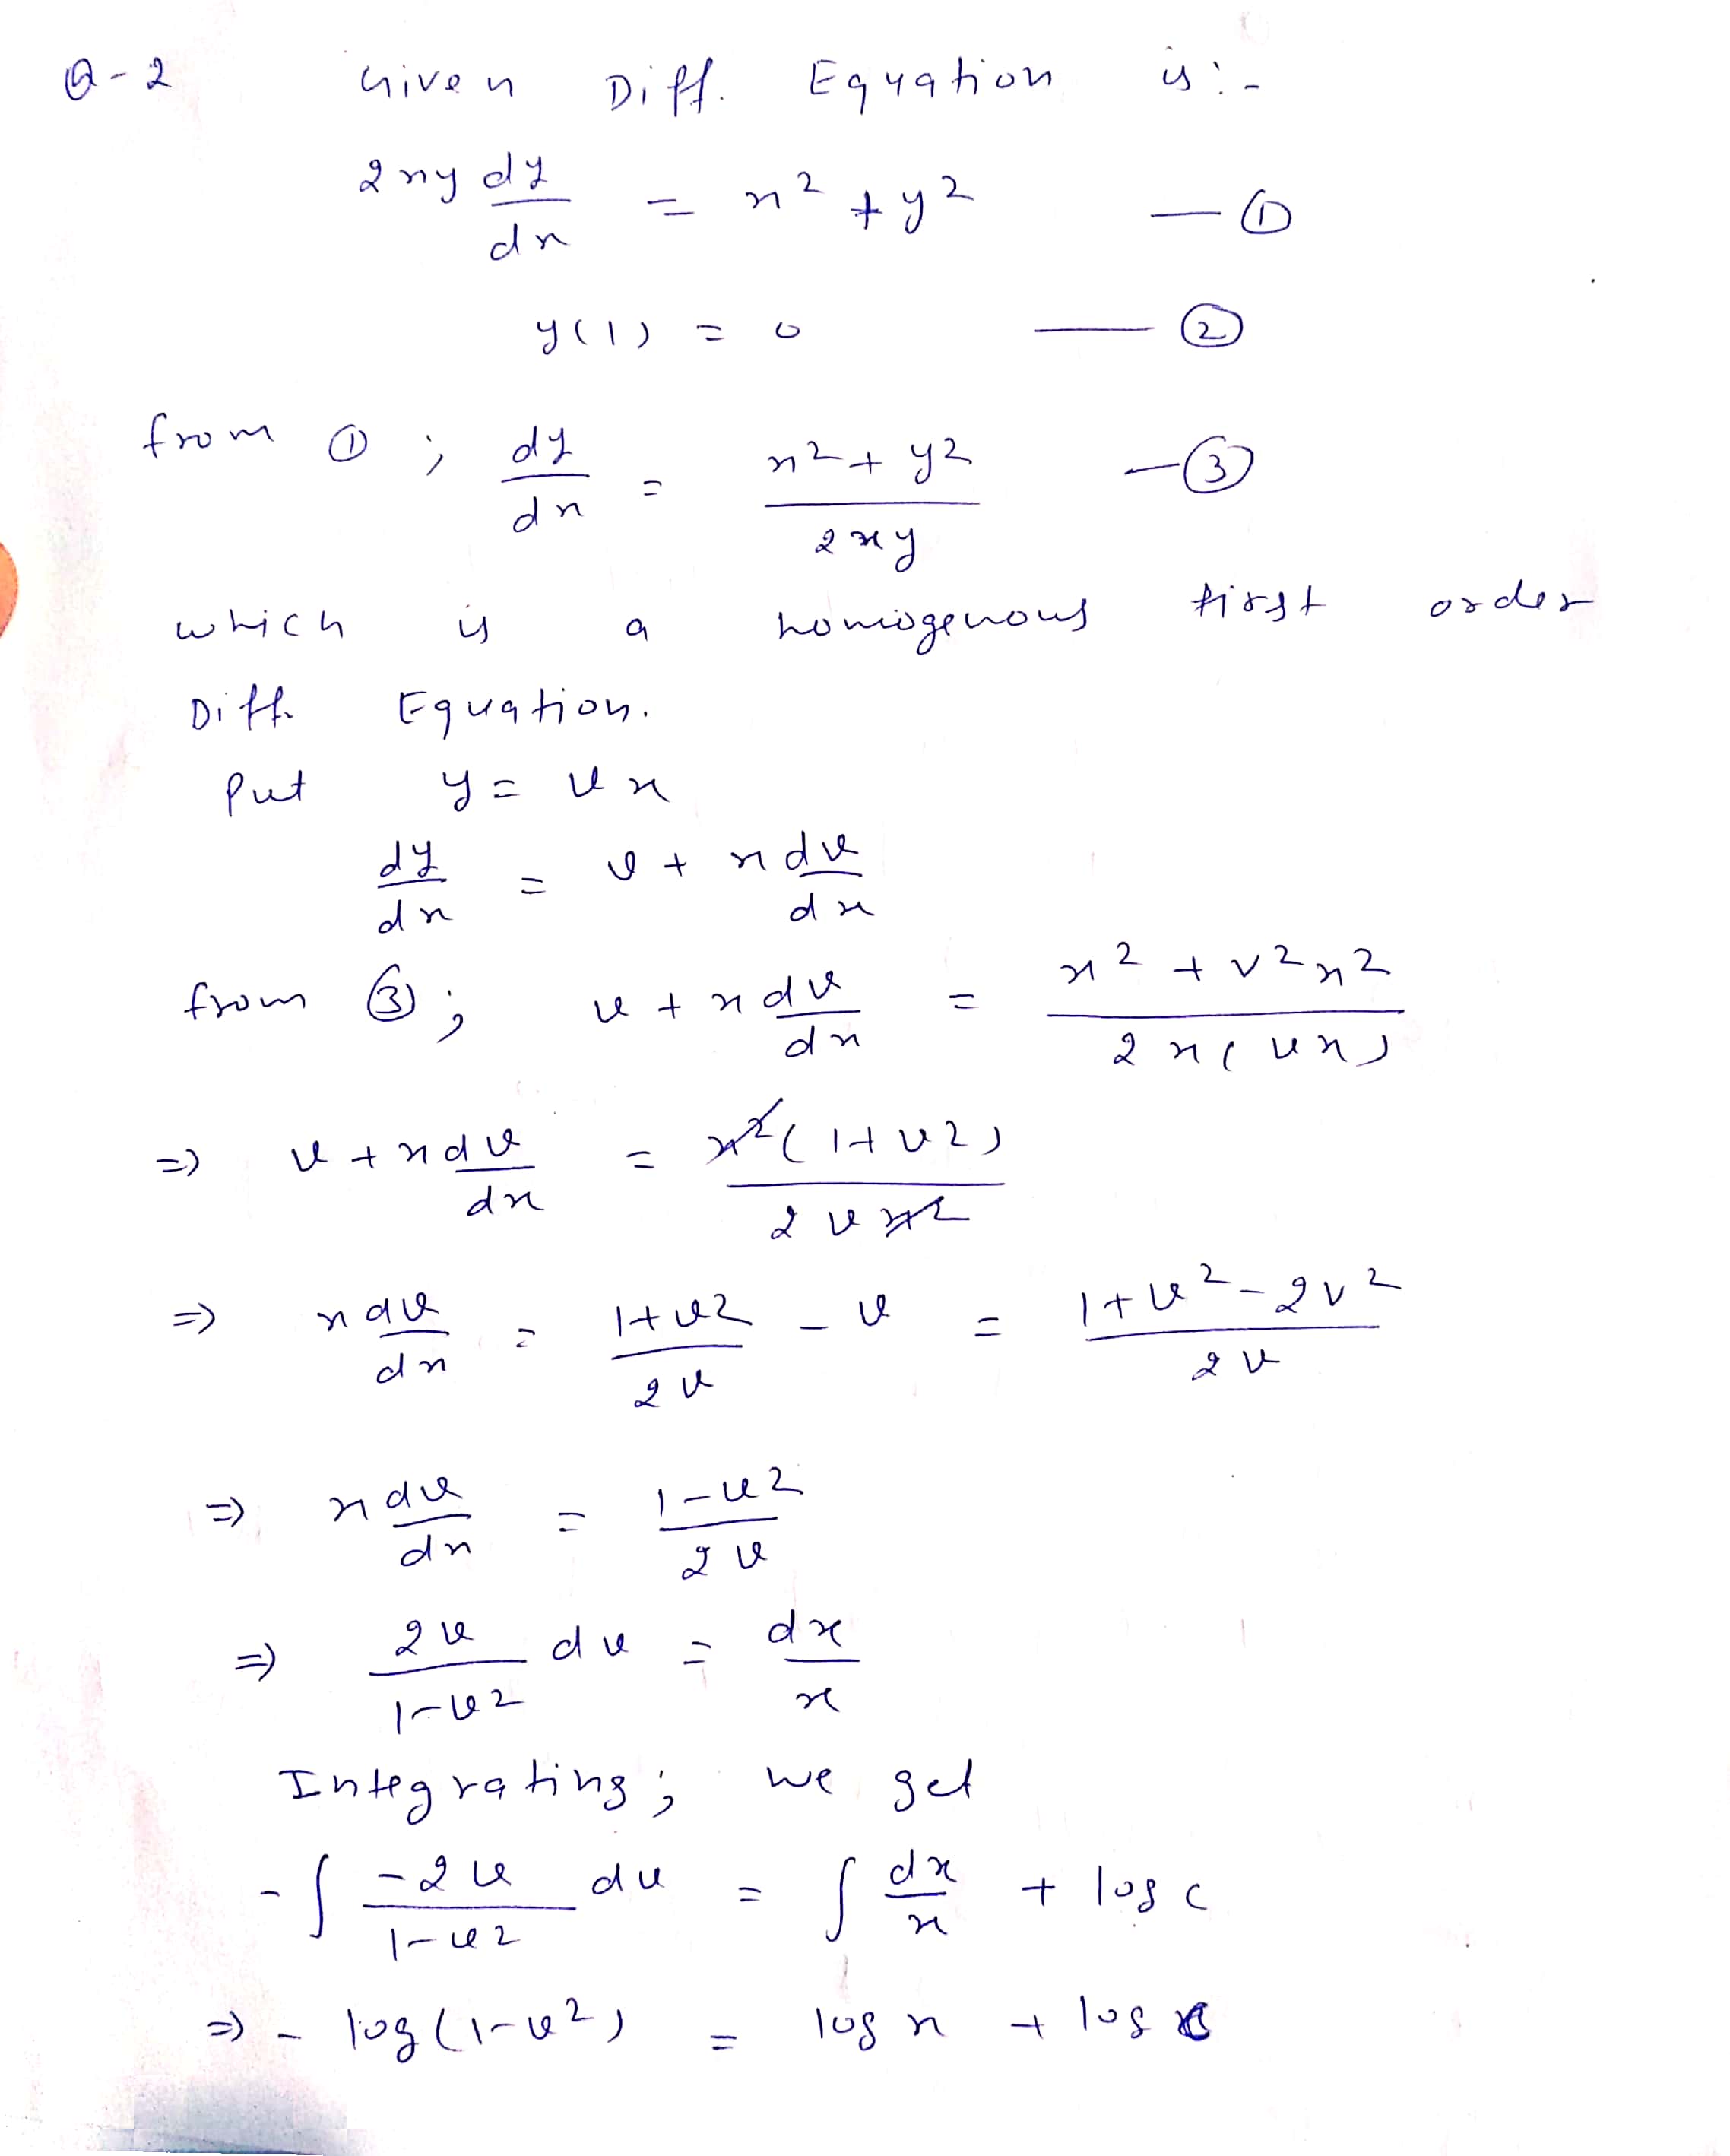 Q-2 Given Diff. Equation is :-
2xy dy/dx = x² + y² — ①
y(1) = 0 — ②
from ① ; dy/dx = x² + y² / 2xy — ③
which is a homogenous first order
Diff. Equation.
Put y = vx
dy/dx = v + x dv/dx
from ③ ; v + x dv/dx = x² + v²x² / 2x(vx)
=> v + x dv/dx = x²(1+v²) / 2vx²
=> x dv/dx = 1+v² / 2v - v = 1+v²-2v² / 2v
=> x dv/dx = 1-v² / 2v
=> 2v / 1-v² dv = dx/x
Integrating ; we get
-∫ -2v / 1-v² dv = ∫ dx/x + log c
=> - log(1-v²) = log x + log c